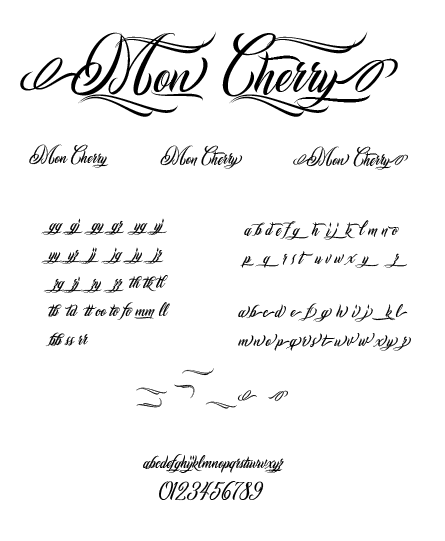 Mon Cherry
Mon Cherry Mon Cherry Mon Cherry
gg gj gy gr yg yj
yy yr jj jg jy jr
rg rj ry rr th tk tl
tb td tt oo to fo mm ll
bb ss rr
a b d e f g h i j k l m n o
p q r s t u v w x y z
a b c d e f g h i j k l
m n o p q r s t u v w x y z
abcdefghijklmnopqrstuvwxyz
0123456789